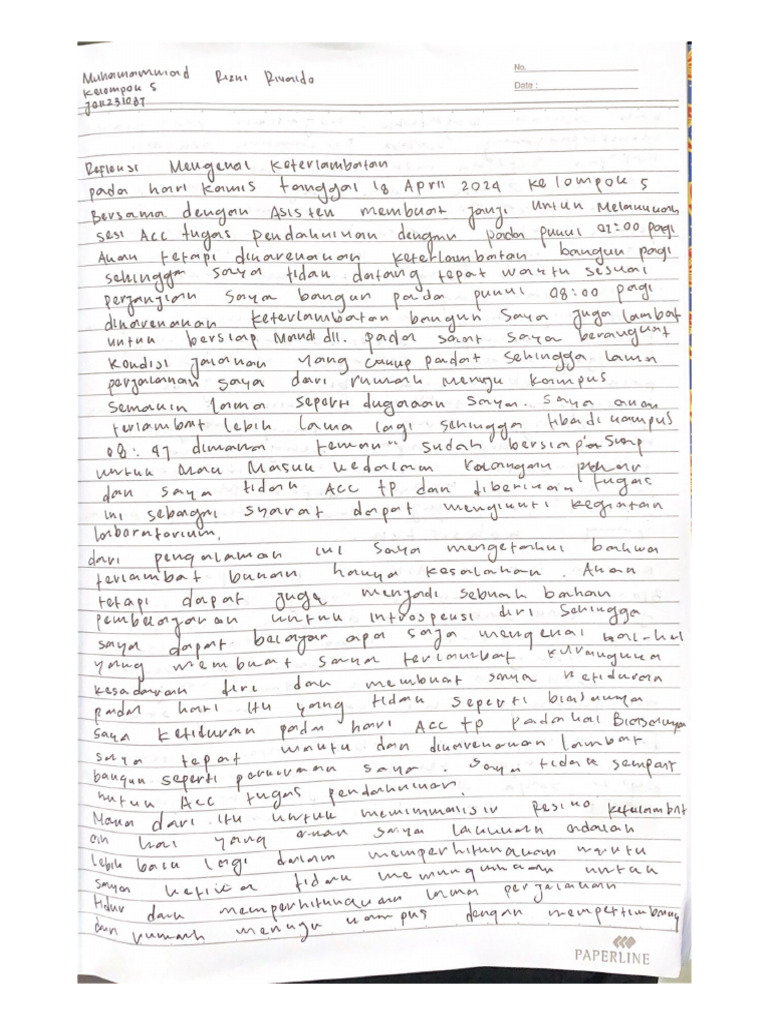 No.
Date :
Muhammad Rizki Rivaldo
Kelompok 5
Refleksi Mengenai Keterlambatan
pada hari Kamis tanggal 18 April 2024 kelompok 5
Bersama dengan Asisten membuat janji untuk Melakukan
sesi Acc tugas pendahuluan dengan pada pukul 07:00 pagi
Akan tetapi dikarenakan keterlambatan bangun pagi
sehingga saya tidak datang tepat waktu sesuai
perjanjian saya bangun pada pukul 08:00 pagi
dikarenakan keterlambatan bangun saya juga lambat
untuk bersiap Mandi dll. pada saat saya berangkat
kondisi jalanan yang cukup padat sehingga lama
perjalanan saya dari rumah menuju kampus
semakin lama seperti dugaan saya. saya akan
terlambat lebih lama lagi sehingga tiba di kampus
08:47 dimana teman" sudah bersiap
untuk mau Masuk kedalam
dan saya tidak Acc tp dan diberikan tugas
ini sebagai syarat dapat mengikuti kegiatan
laboratorium.
dari pengalaman ini saya mengetahui bahwa
terlambat bukan hanya kesalahan. Akan
tetapi dapat juga menjadi sebuah bahan
pembelajaran untuk introspeksi diri Sehingga
saya dapat belajar apa saja mengenai hal-hal
yang membuat saya terlambat kurangnya
kesadaran diri dan membuat saya ketiduran
pada hari itu yang tidak seperti biasanya
saya ketiduran pada hari Acc tp padahal Biasanya
saya tepat waktu dan dikarenakan lambat
bangun seperti perkiraan saya. Saya tidak sempat
untuk Acc tugas pendahuluan.
Maka dari itu untuk meminimalisir Resiko keterlambat
an hal yang akan saya lakukan adalah
lebih baik lagi dalam memperhitungkan waktu
saya ketika tidak memungkinkan untuk
tidur dan memperhitungkan lama perjalanan
dari rumah menuju kampus dengan mempertimbang
PAPERLINE